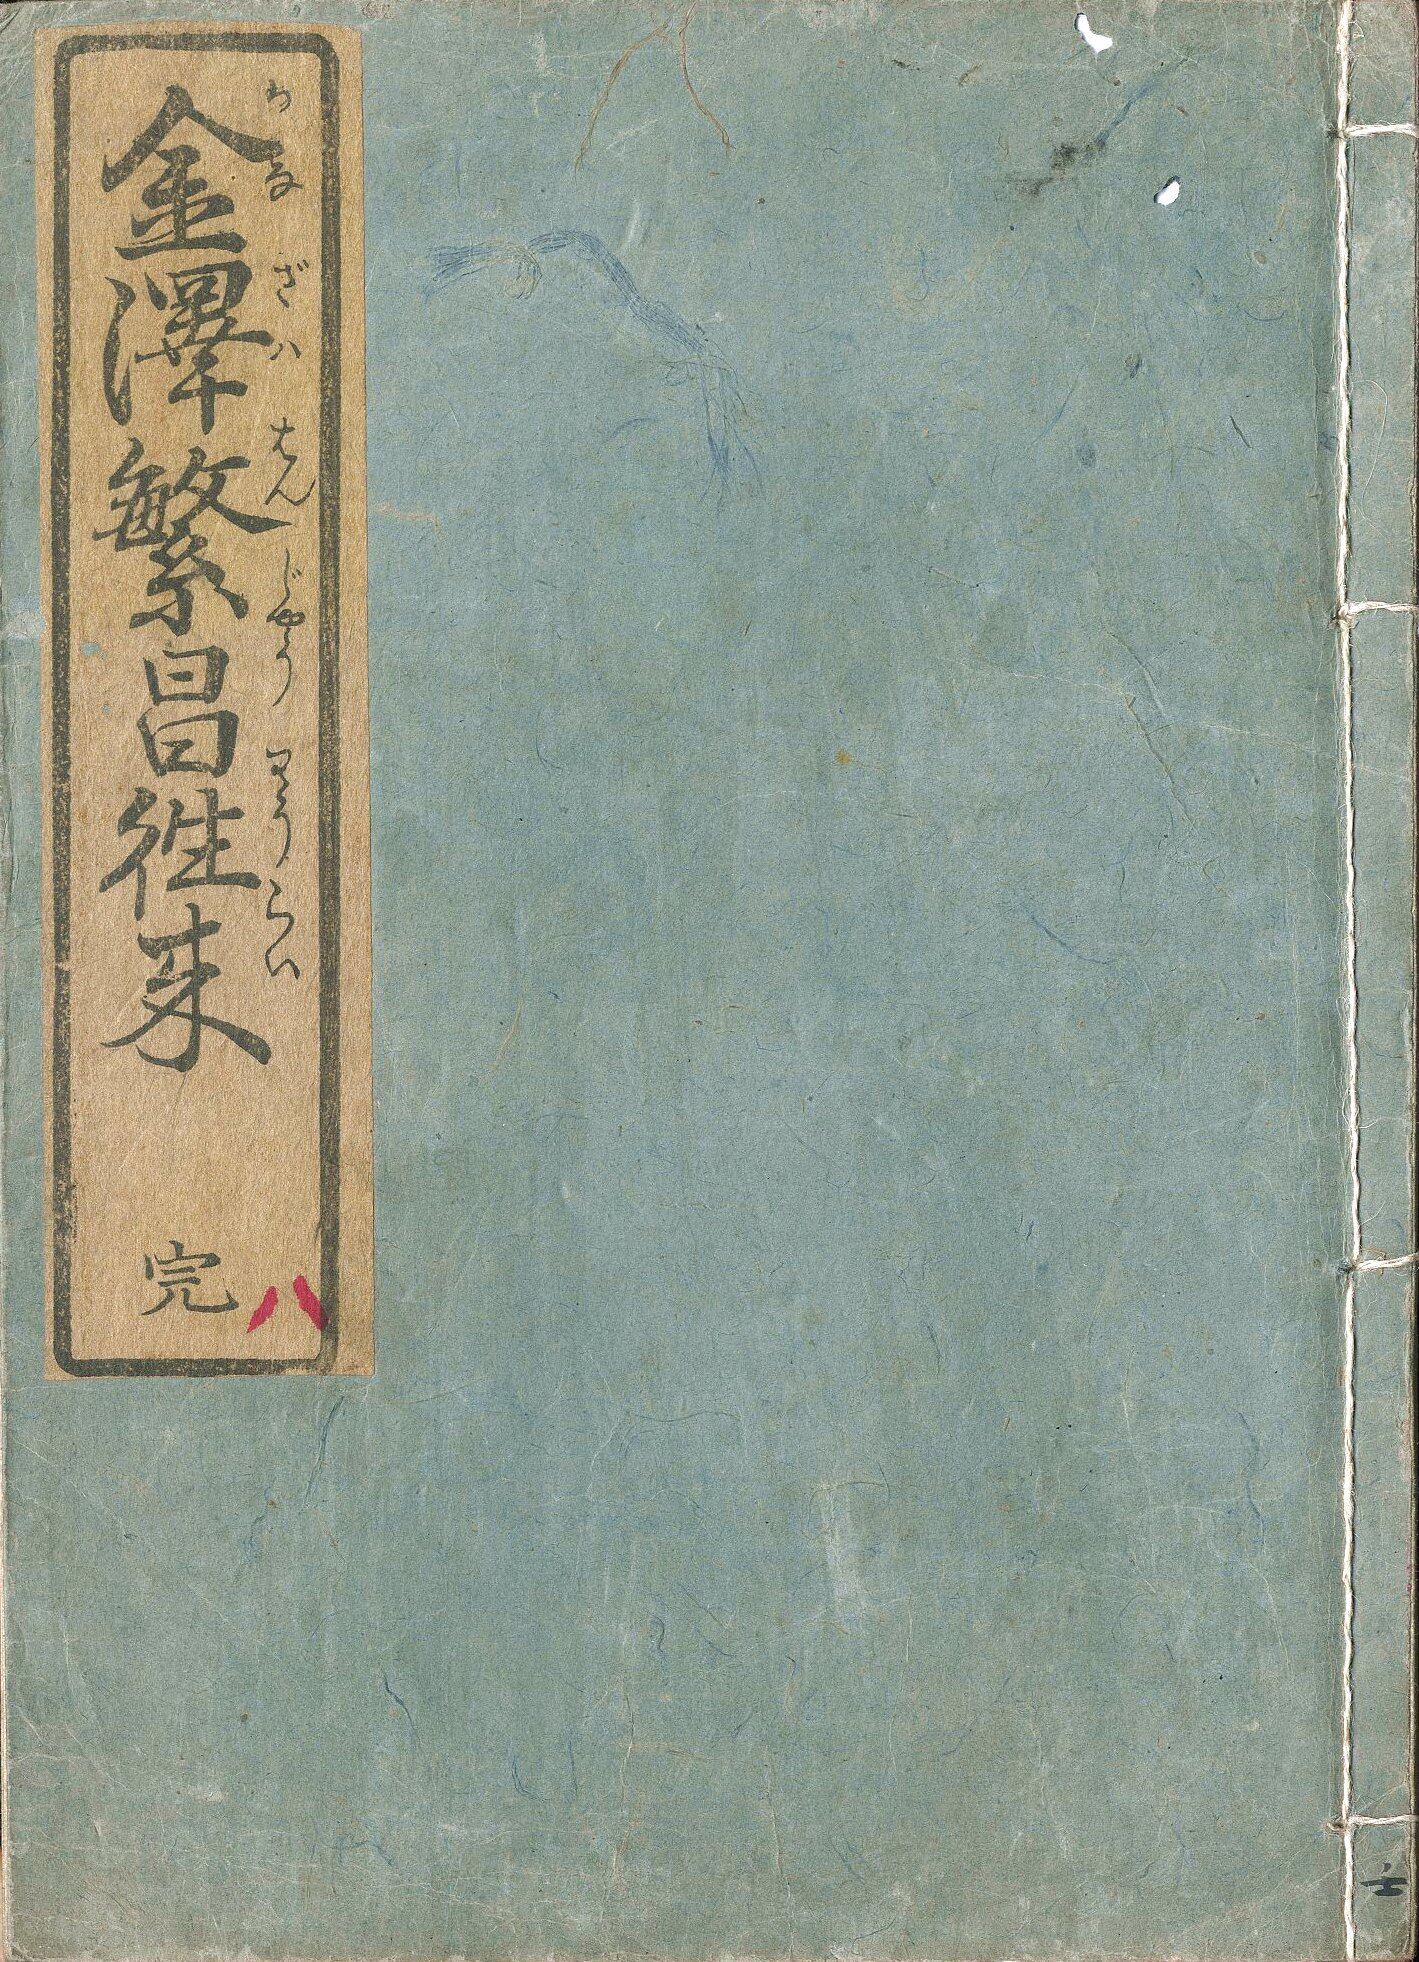 金澤繁昌徃来
かなざハはんじやうわうらい
完
八